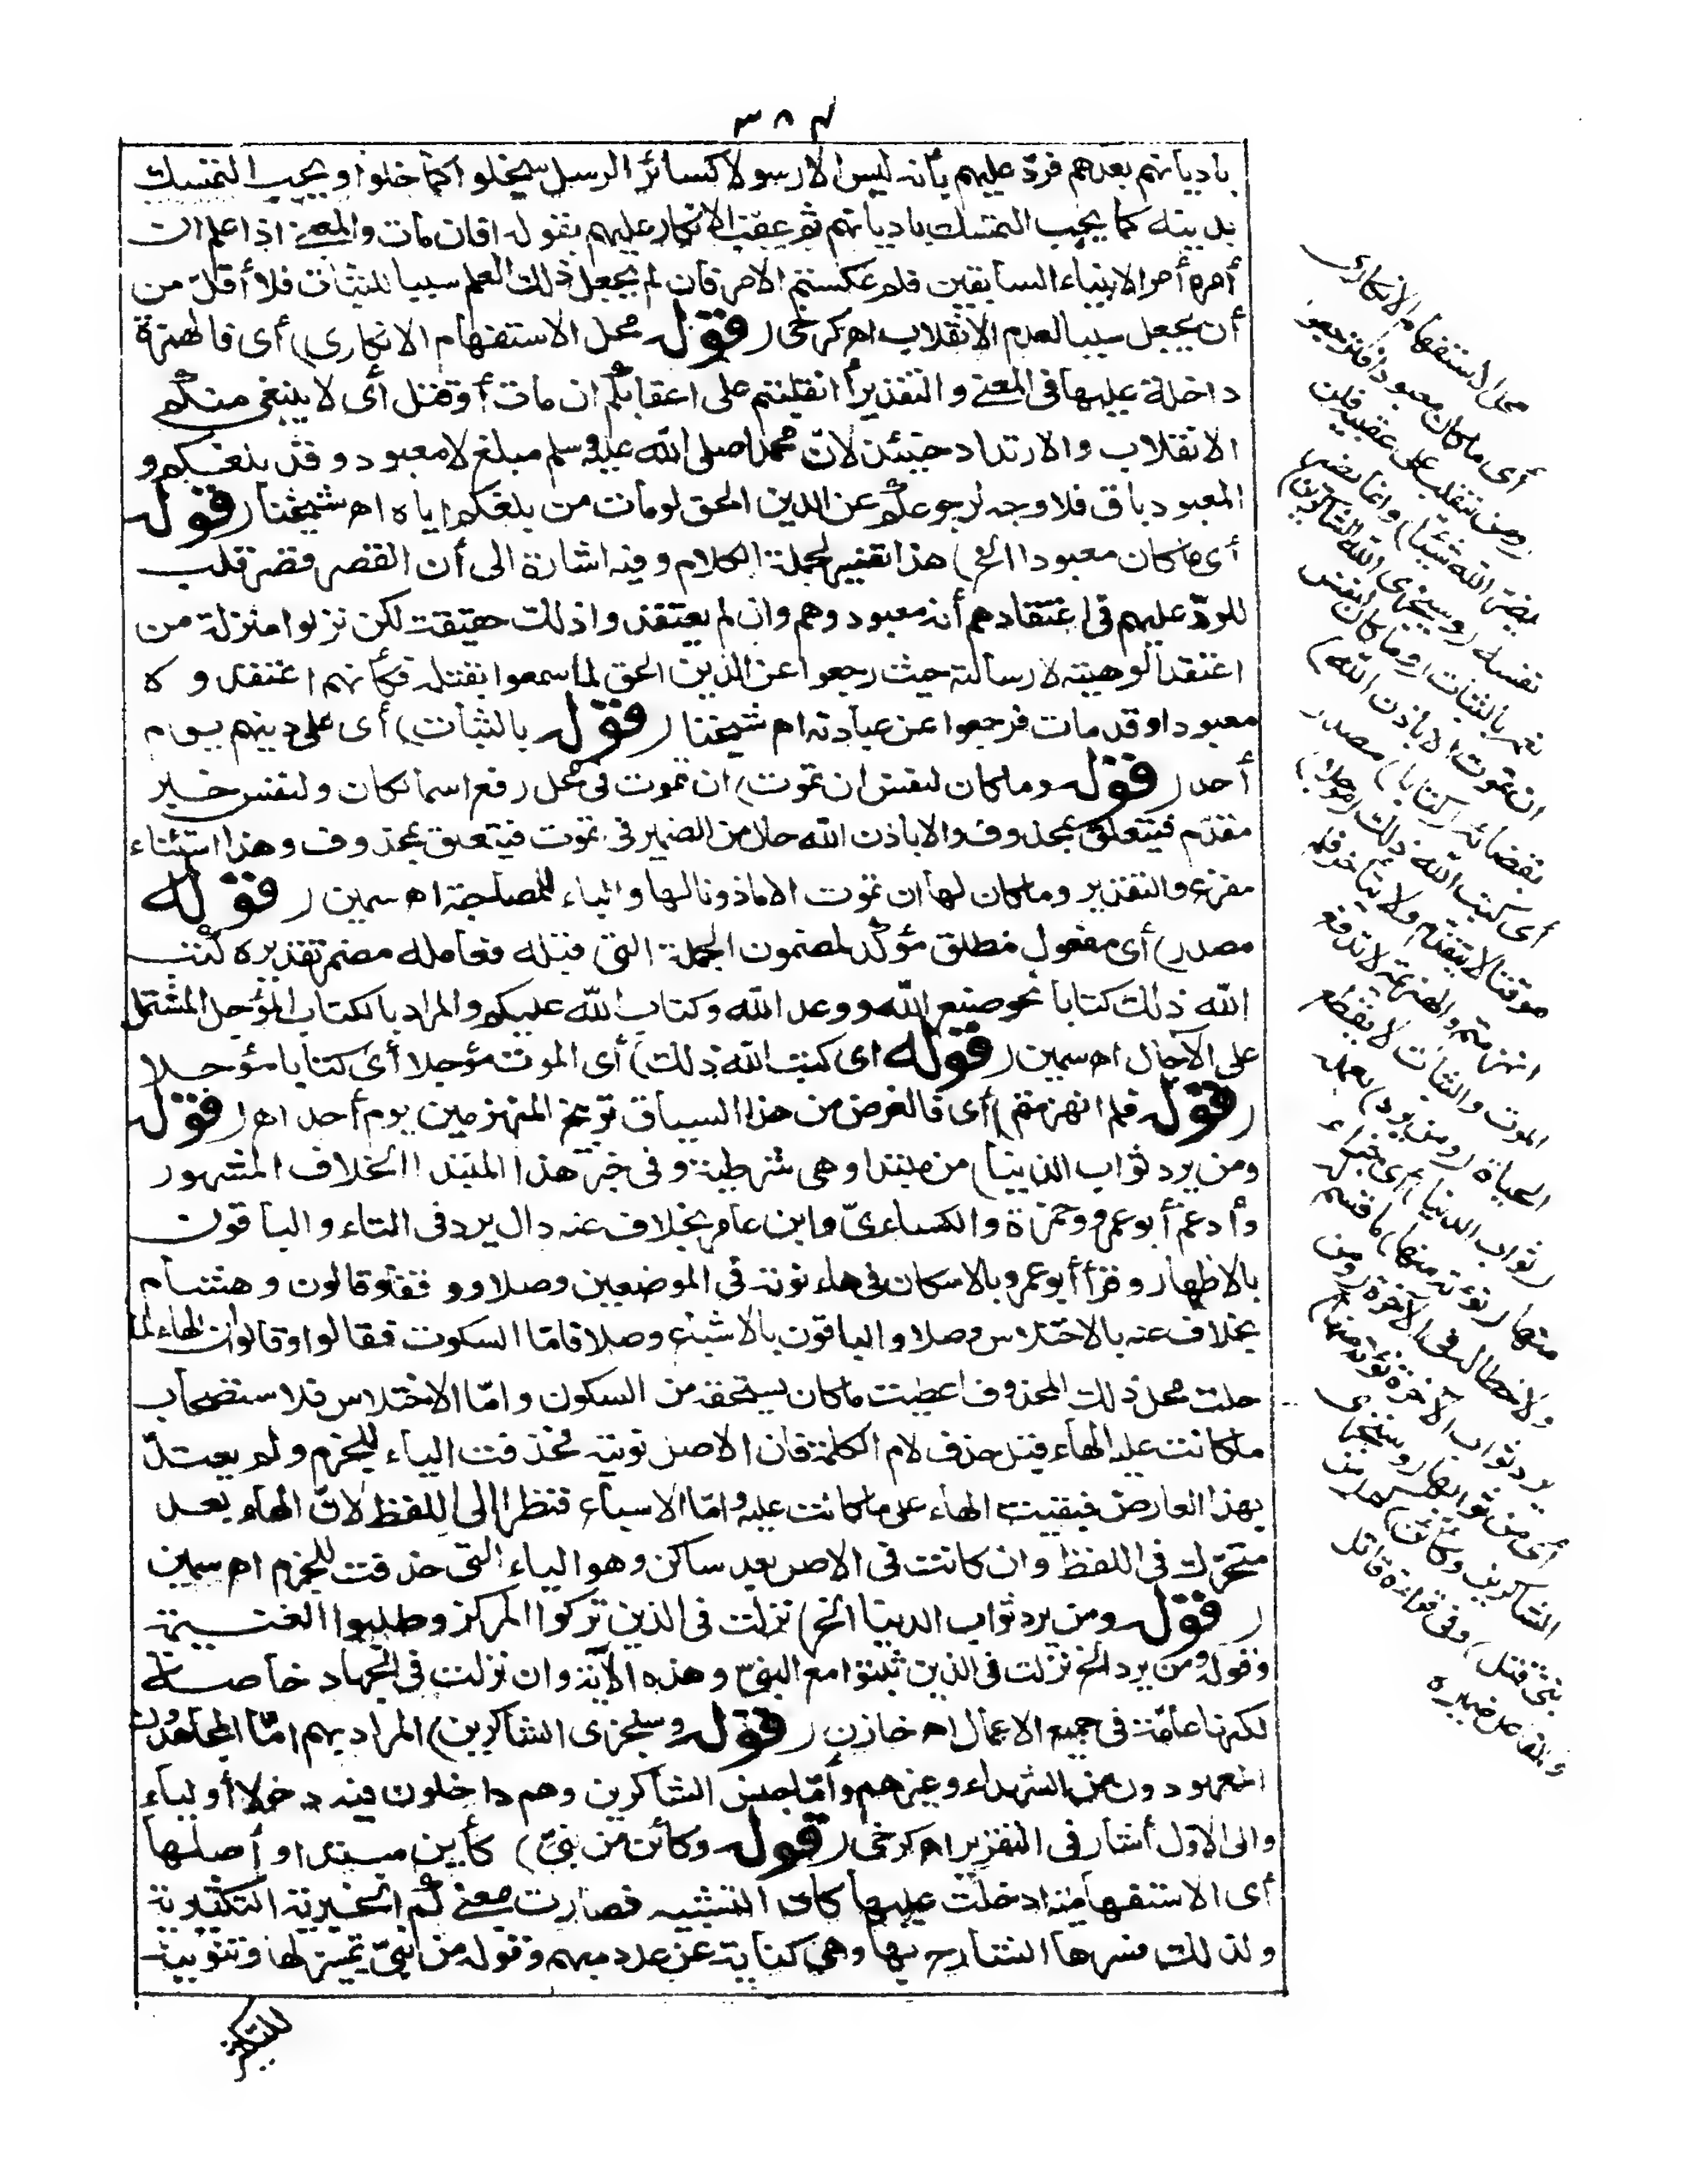 ٣٨٤
باديانهم بعدهم فردّ عليهم بأنه ليس الا رسولا كسائر الرسل سيخلوا كما خلوا ويجب التمسك
بدينه كما يجب التمسك باديانهم ثم عقب الانكار عليهم بقوله افان مات والمعنى اذا علم ان
أمره أمر الانبياء السابقين فلم عكستم الامر فان لم يجعل ذلك العلم سببا للثبات فلا أقل من
أن يجعل سببا لعدم الانقلاب اهـ كرخى (قوله محل الاستفهام الانكارى) أى فالهمزة
داخلة عليها فى المعنى والتقدير أانقلبتم على اعقابكم ان مات أو قتل أى لا ينبغى منكم
الانقلاب والارتداد حينئذ لانّ محمدا صلى الله عليه وسلم مبلغ لا معبود وقد بلغكم و
المعبود باق فلا وجه لرجوعكم عن الدين الحق لو مات من بلغكم اياه اهـ شيخنا (قوله
أى ما كان معبودا الخ) هذا تفسير لجملة الكلام وفيه اشارة الى أن القصر قصر قلب
للردّ عليهم فى اعتقادهم أنه معبود وهم وان لم يعتقدوا ذلك حقيقة لكن نزلوا منزلة من
اعتقد ألوهيته لا رسالته حيث رجعوا عن الدين الحق لما سمعوا بقتله فكأنهم اعتقدوه
معبودا وقد مات فرجعوا عن عبادته اهـ شيخنا (قوله بالثبات) أى على دينهم يوم
أحد (قوله وما كان لنفس ان تموت) ان تموت فى محل رفع اسما لكان ولنفس خبر
مقدّم فيتعلق بمحذوف والا باذن الله حال من الضمير فى تموت فيتعلق بمحذوف وهذا استثناء
مفرّغ والتقدير وما كان لها ان تموت الا ماذونا لها والباء للمصاحبة اهـ سمين (قوله
مصدر) أى مفعول مطلق مؤكّد لمضمون الجملة التى قبله فعامله مضمر تقديره كتب
الله ذلك كتابا نحو صنع الله ووعد الله وكتاب الله عليكم والمراد بالكتاب المؤجل المشتمل
على الآجال اهـ سمين (قوله اى كتب الله ذلك) أى الموت مؤجلا أى كتابا مؤجلا
(قوله فلم انهزمتم) أى فالغرض من هذا السياق توبيخ المنهزمين يوم أحد اهـ (قوله
ومن يرد ثواب الدنيا) من مبتدا وهى شرطية وفى خبر هذا المبتدا الخلاف المشهور
وأدغم أبو عمرو وحمزة والكساءىّ وابن عامر بخلاف عنه دال يرد فى الثاء والباقون
بالاظهار وقرأ أبو عمرو بالاسكان فى هاء نوته فى الموضعين وصلا ووقفا وقالون وهشام
بخلاف عنه بالاختلاس وصلا والباقون بالاشباع وصلا فامّا السكون فقالوا وقالوا ان الهاء لما
حلت محل ذلك المحذوف اعطيت ما كان يستحقه من السكون وامّا الاختلاس فلاستصحاب
ما كانت عليه الهاء قبل حذف لام الكلمة فان الاصل نوتيه فحذفت الياء للجزم ولم يعتدّ
بهذا العارض فبقيت الهاء على ما كانت عليه وامّا الاشباع فنظرا الى اللفظ لانّ الهاء بعد
متحرّك فى اللفظ وان كانت فى الاصل بعد ساكن وهو الياء التى حذفت للجزم اهـ سمين
(قوله ومن يرد ثواب الدنيا الخ) نزلت فى الذين تركوا المركز وطلبوا الغنيمة
وقوله ومن يرد الخ نزلت فى الذين ثبتوا مع النبىّ وهذه الآية وان نزلت فى الجهاد خاصة
لكنها عامّة فى جميع الاعمال اهـ خازن (قوله وسنجزى الشاكرين) المراد بهم امّا المجاهدون
المعهودون من الشهداء وغيرهم وأمّا جنس الشاكرين وهم داخلون فيه دخولا أوليا
والى الاوّل أشار فى التقرير اهـ كرخى (قوله وكأين من نبىّ) كأين مبتدا وأصلها
أى الاستفهامية ادخلت عليها كاف التشبيه فصارت بمعنى كم الخبرية التكثيرية
ولذلك فسرها الشارح بها وهى كناية عن عدد مبهم وقوله من نبىّ تمييز لها وتنوينه
للتكثير
محل الاستفهام الانكارى
أى ما كان معبودا فترجعوا
(ومن ينقلب على عقبيه فلن
يضرّ الله شيئا) وانما يضر
نفسه (وسيجزى الله الشاكرين)
نعمه بالثبات (وما كان لنفس
ان تموت الا باذن الله)
بقضائه (كتابا) مصدر
أى كتب الله ذلك (مؤجلا)
موقتا لا يتقدّم ولا يتأخر فلم
انهزمتم والهزيمة لا تدفع
الموت والثبات لا يقطع
الحياة (ومن يرد) بعمله
(ثواب الدنيا) أى جزاءه
منها (نؤته منها) ما قسم له
ولا حظ له فى الآخرة (ومن
يرد ثواب الآخرة نؤته منها)
أى من ثوابها (وسنجزى
الشاكرين وكأين) كم (من
نبىّ قتل) وفى قراءة قاتل
والفاعل ضميره